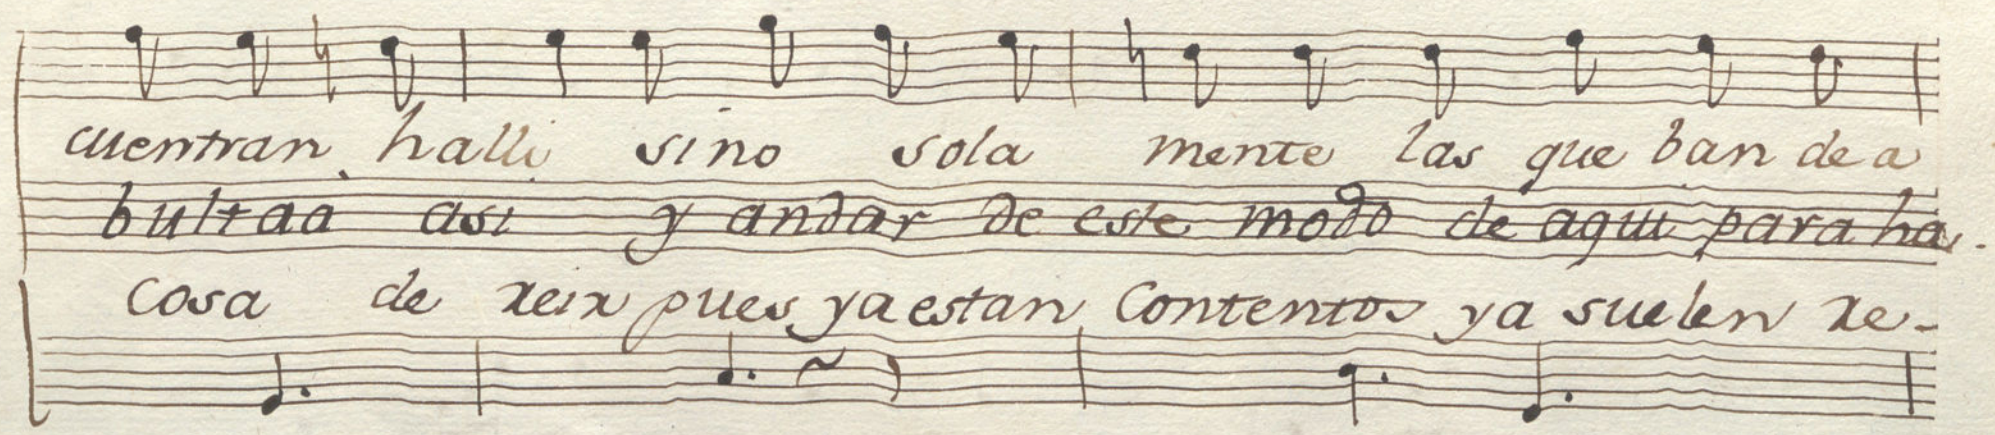 cuentran halli sino sola mente las que ban de a
bultaa asi y andar de este modo de aqui para ha.
Cosa de reir pues ya estan Contentos ya suelen re-